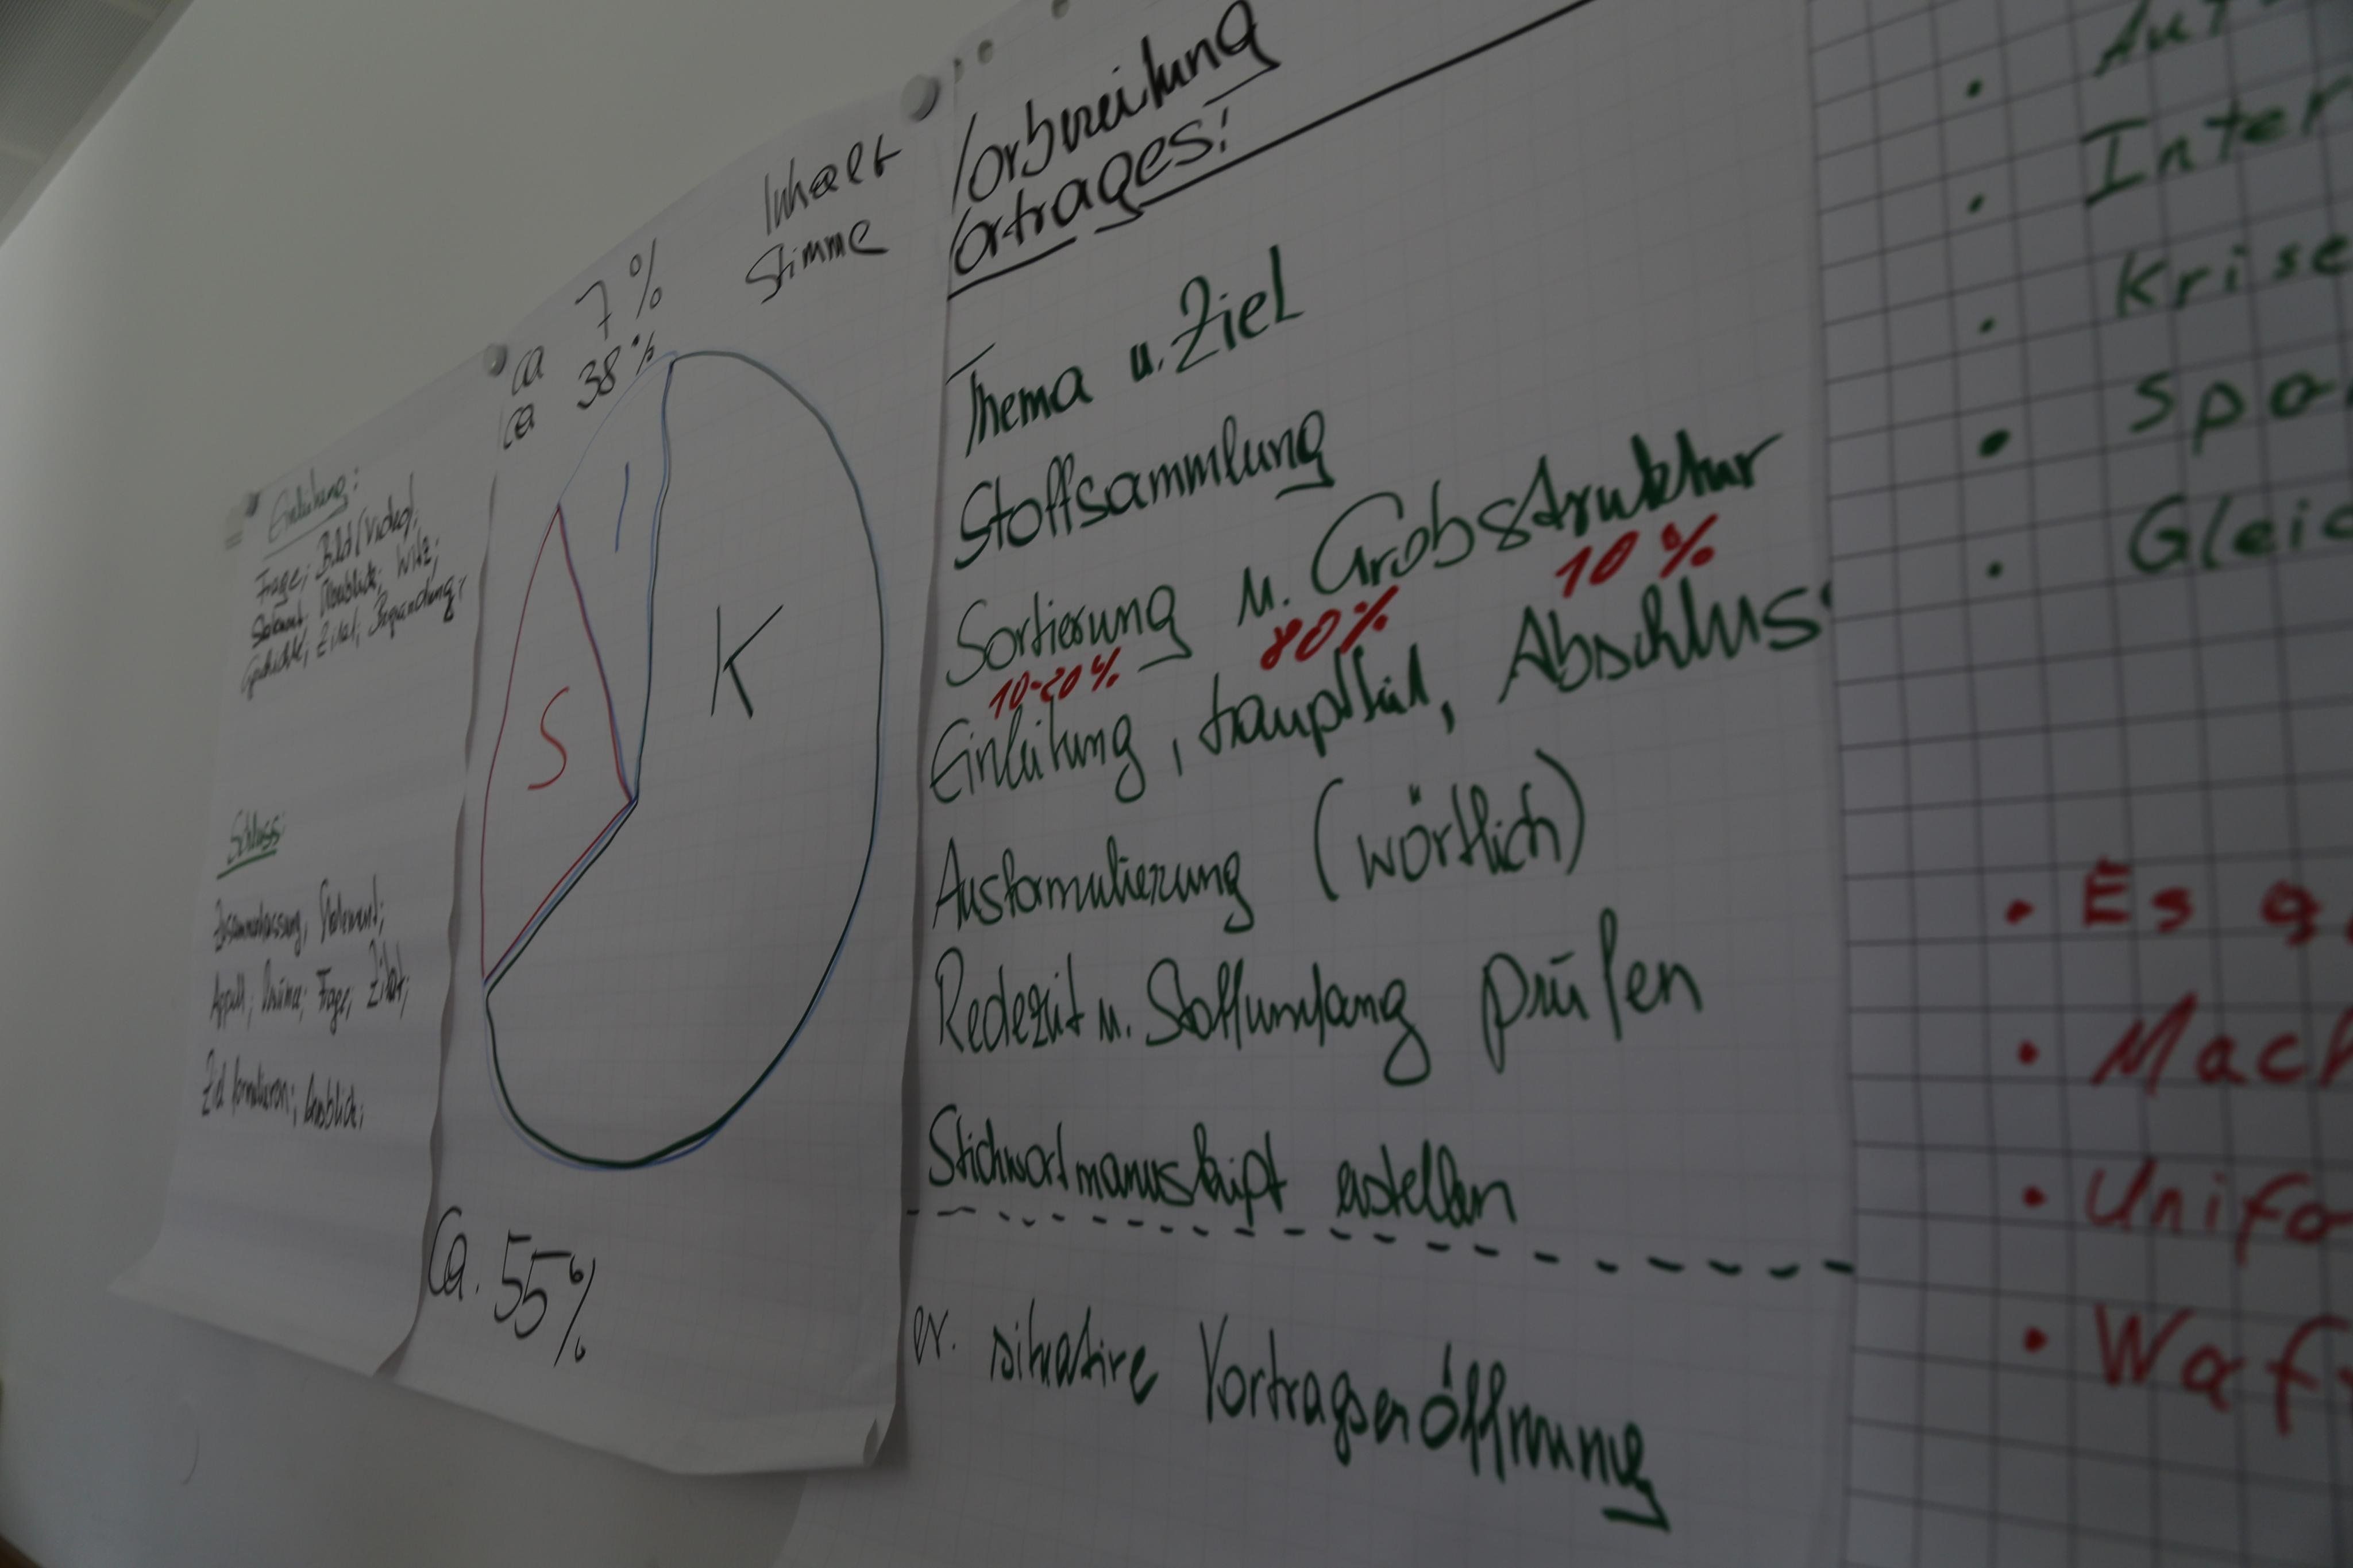 Einleitung:
Frage; Bild (Video);
Statement; Überblick; Witz;
Geschichte; Zitat;
Schluss:
Zusammenfassung, Statement;
Appell; Frage; Zitat;
Ziel formulieren; Ausblick;
ca 7% Inhalt
ca 38% Stimme
I
S
K
Ca. 55%
Vorbereitung
Vortrages:
Thema u. Ziel
Stoffsammlung
Sortierung u. Grobstruktur
10-20% 80% 10%
Einleitung, Hauptteil, Abschluss
Ausformulierung (wörtlich)
Redezeit u. Stoffumfang prüfen
Stichwortmanuskript erstellen
ev. situative Vortragseröffnung
• Aut
• Inter
• Krise
• Spa
• Gleic
• Es g
• Mach
• Unifo
• Waf